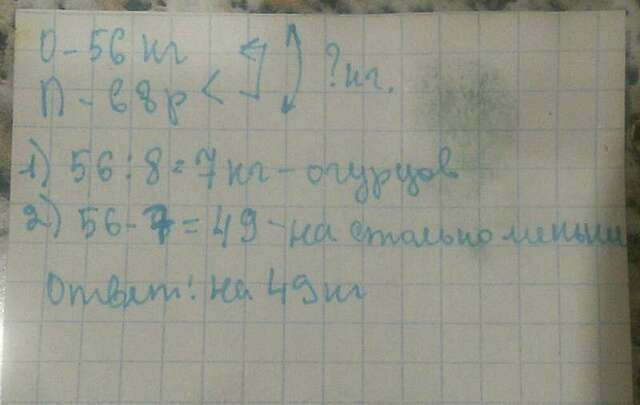 О - 56 кг
П - в 8 р < ? кг.
1) 56 : 8 = 7 кг - огурцов
2) 56 - 7 = 49 - на столько меньше
Ответ: на 49 кг